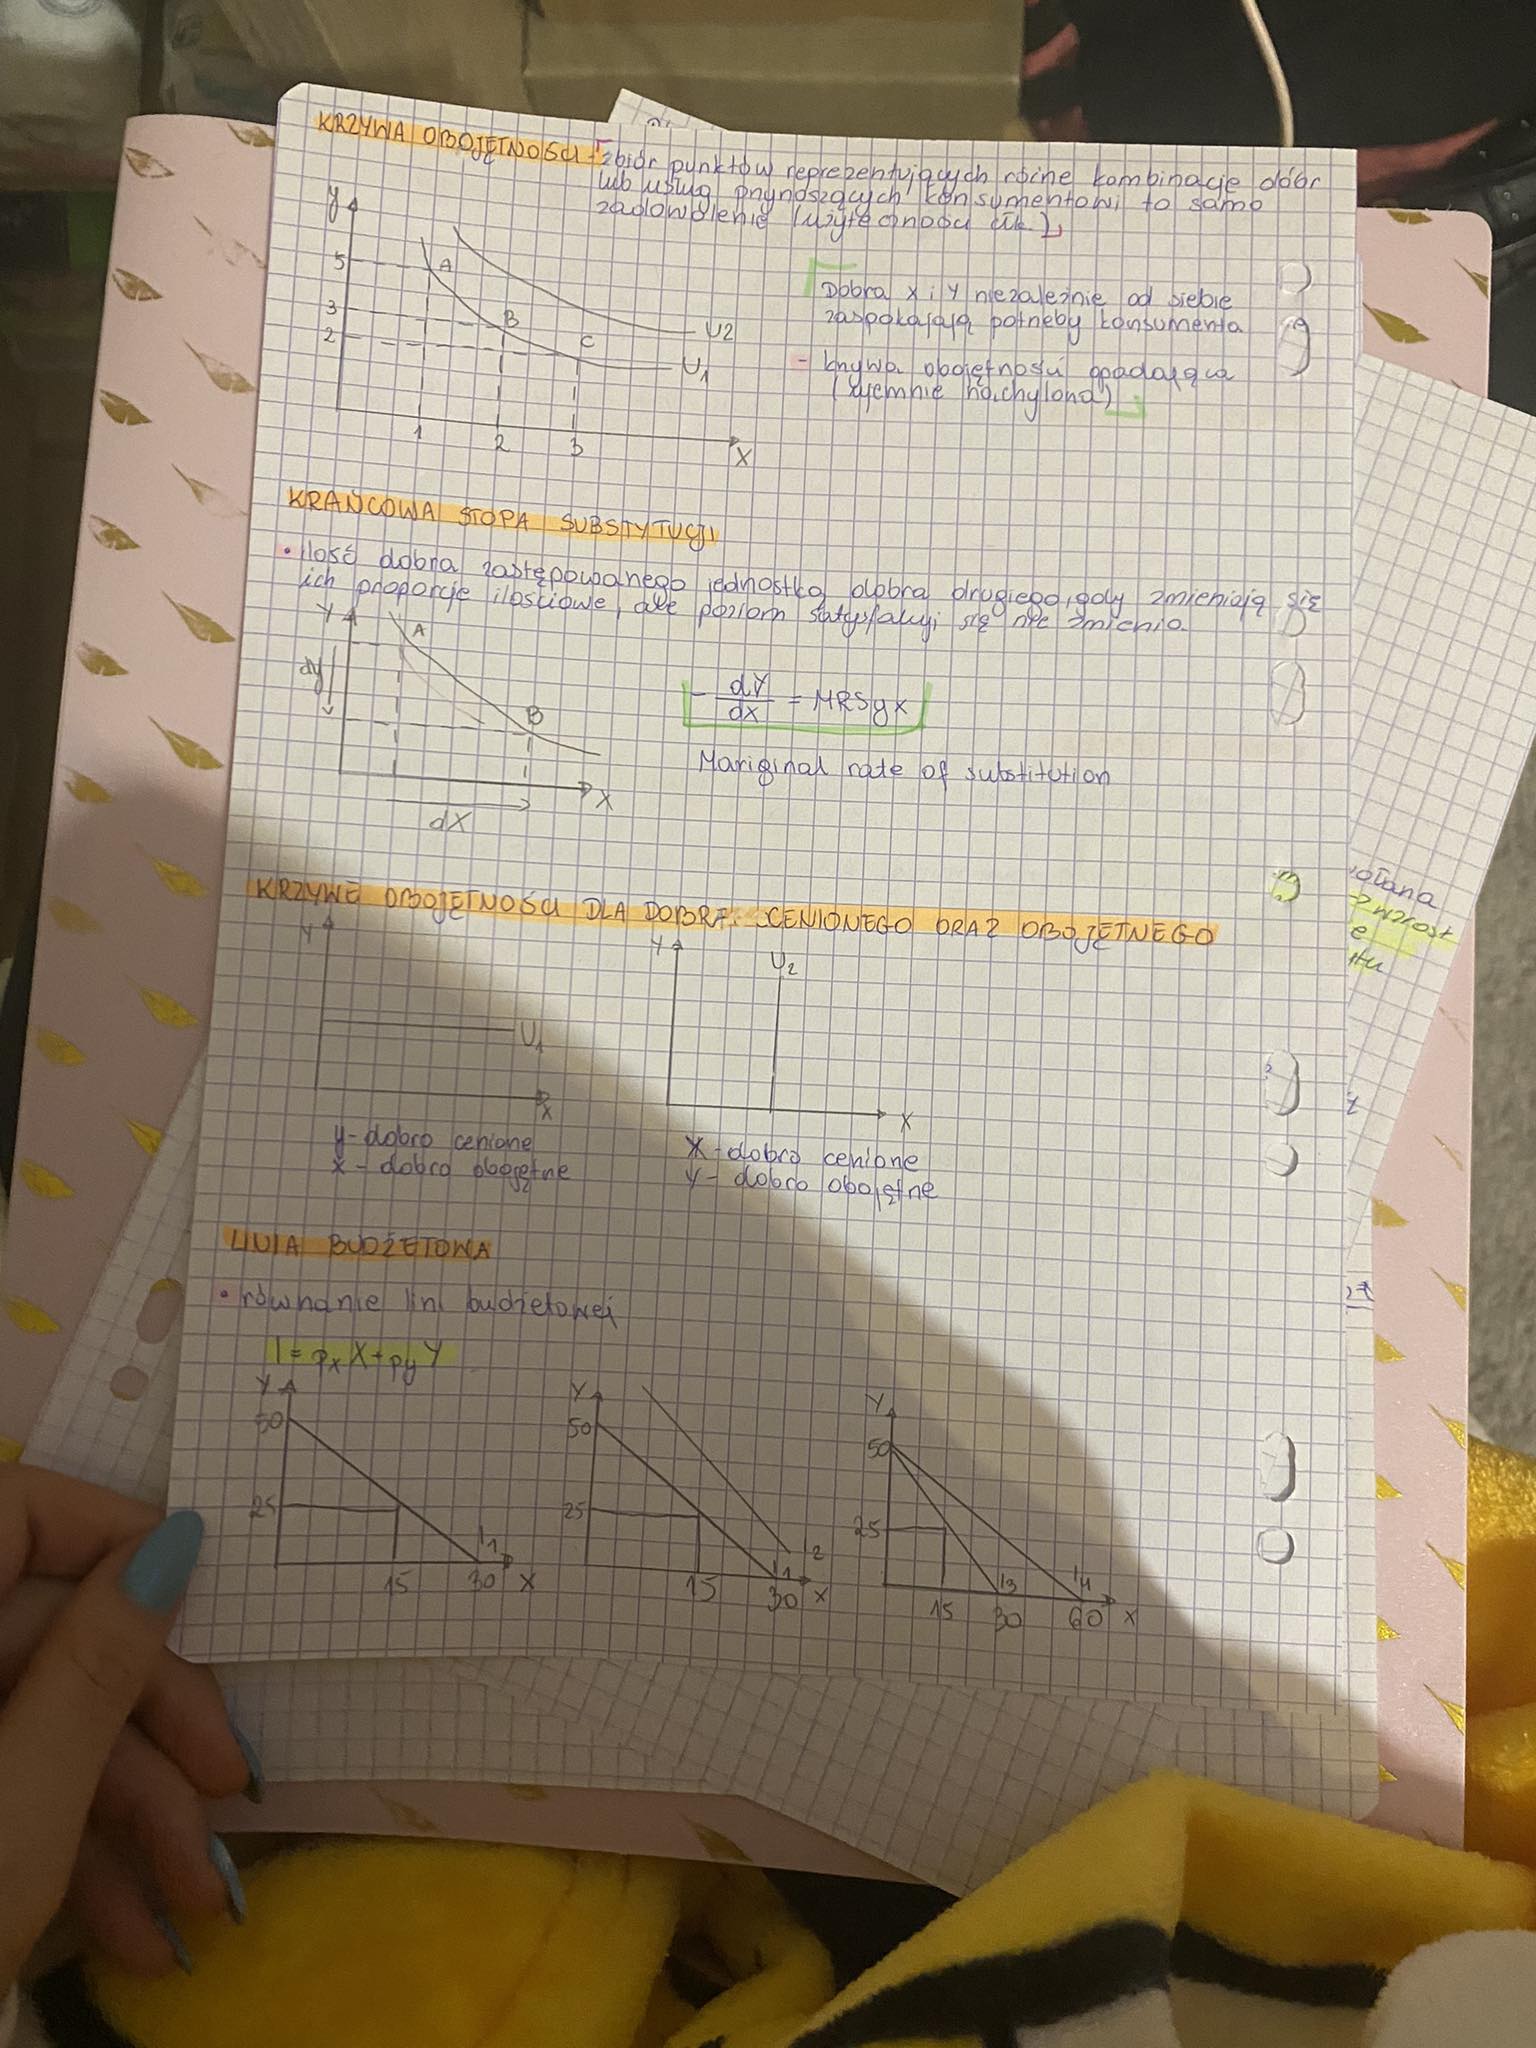 KRZYWA OBOJĘTNOŚCI - zbiór punktów reprezentujących różne kombinacje dóbr
lub usług przynoszących konsumentowi to samo
zadowolenie (użyteczności
y
5
3
2
A
B
C
U2
U1
1
2
3
X
Dobra x i y niezależnie od siebie
zaspokajają potrzeby konsumenta
- krzywa obojętności opadająca
(ujemnie nachylona)
KRAŃCOWA STOPA SUBSTYTUCJI
• ilość dobra zastępowanego jednostką dobra drugiego, gdy zmieniają się
ich proporcje ilościowe, ale poziom satysfakcji się nie zmienia.
Y
A
dy
B
X
dX
- dY/dx = MRSyx
Mariginal rate of substitution
KRZYWE OBOJĘTNOŚCI DLA DOBRA CENIONEGO ORAZ OBOJĘTNEGO
Y
U1
X
y - dobro cenione
x - dobro obojętne
Y
U2
X
X - dobro cenione
y - dobro obojętne
LINIA BUDŻETOWA
• równanie lini budżetowej
I = pxX + pyY
Y
50
25
I1
15
30
X
Y
50
25
I2
I1
15
30
X
Y
50
25
I3
I4
15
30
60
X
ołana
wzrost
e